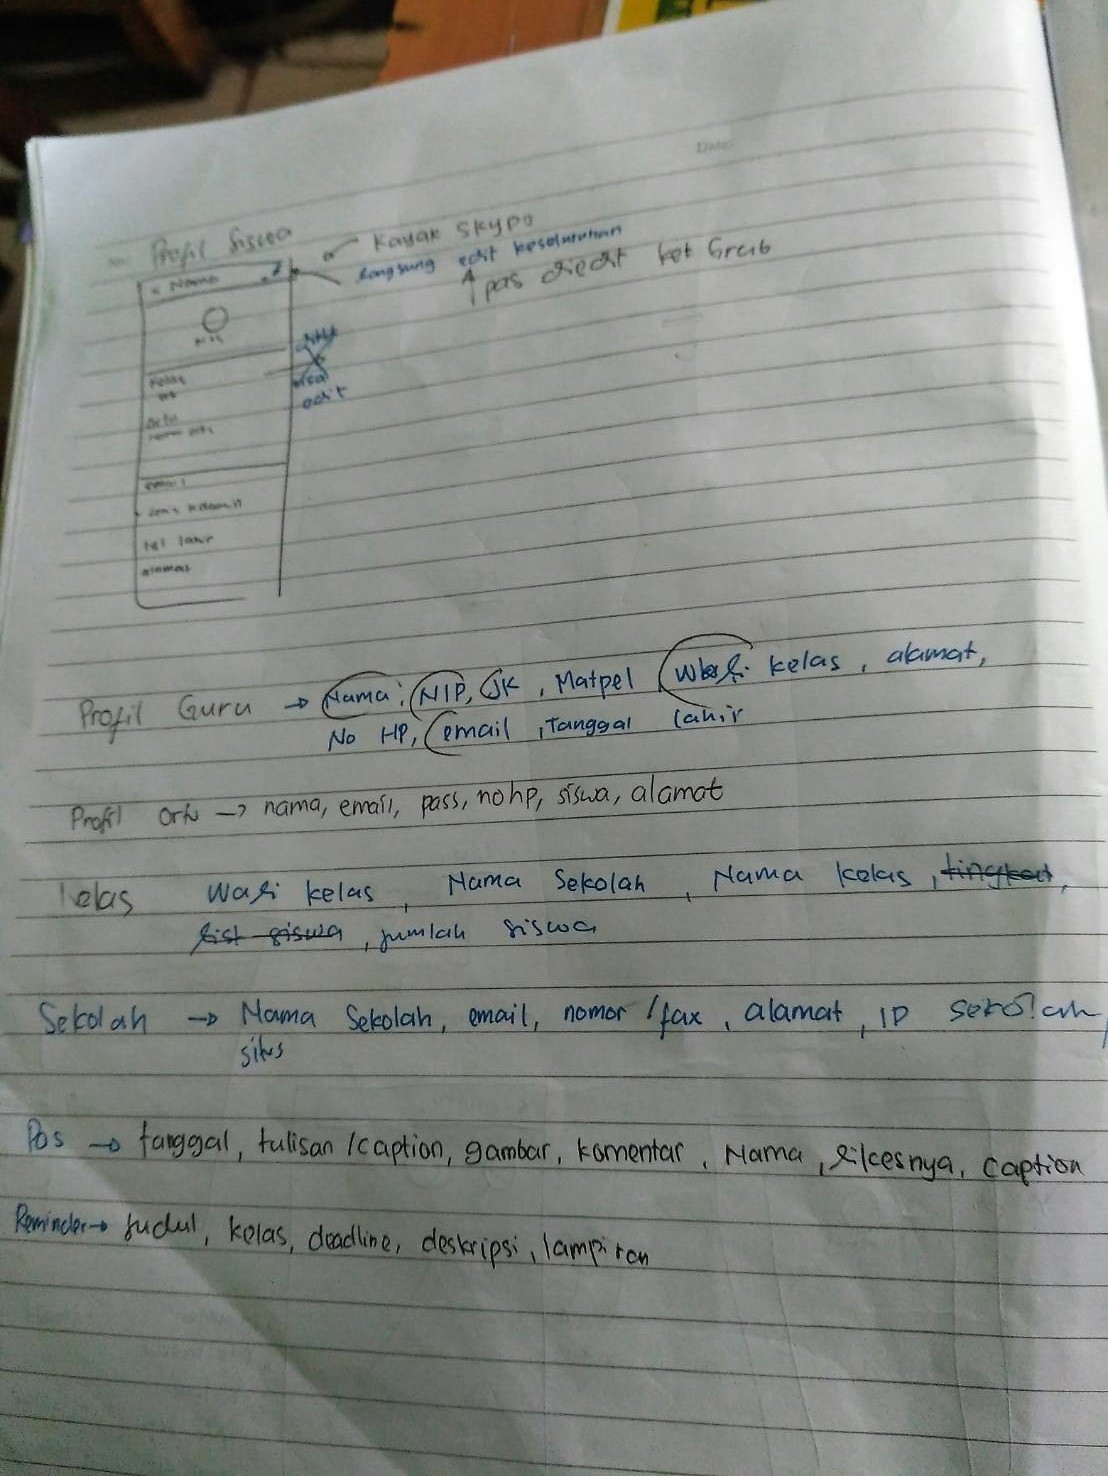 Date:
Profil Siswa
Kayak Skype
langsung edit keseluruhan
pas diedit kek Grab
< Nama
bisa
edit
email
tgl lahir
alamat
Profil Guru → Nama, NIP, JK, Matpel Wali kelas, alamat,
No HP, email, Tanggal lahir
Profil Ortu → nama, email, pass, no hp, siswa, alamat
Kelas Wali kelas, Nama Sekolah, Nama kelas, tingkat,
list siswa, jumlah siswa
Sekolah → Nama Sekolah, email, nomor /fax, alamat, ID sekolah,
situs
Pos → tanggal, tulisan /caption, gambar, komentar, Nama, likesnya, caption
Reminder → judul, kelas, deadline, deskripsi, lampiran